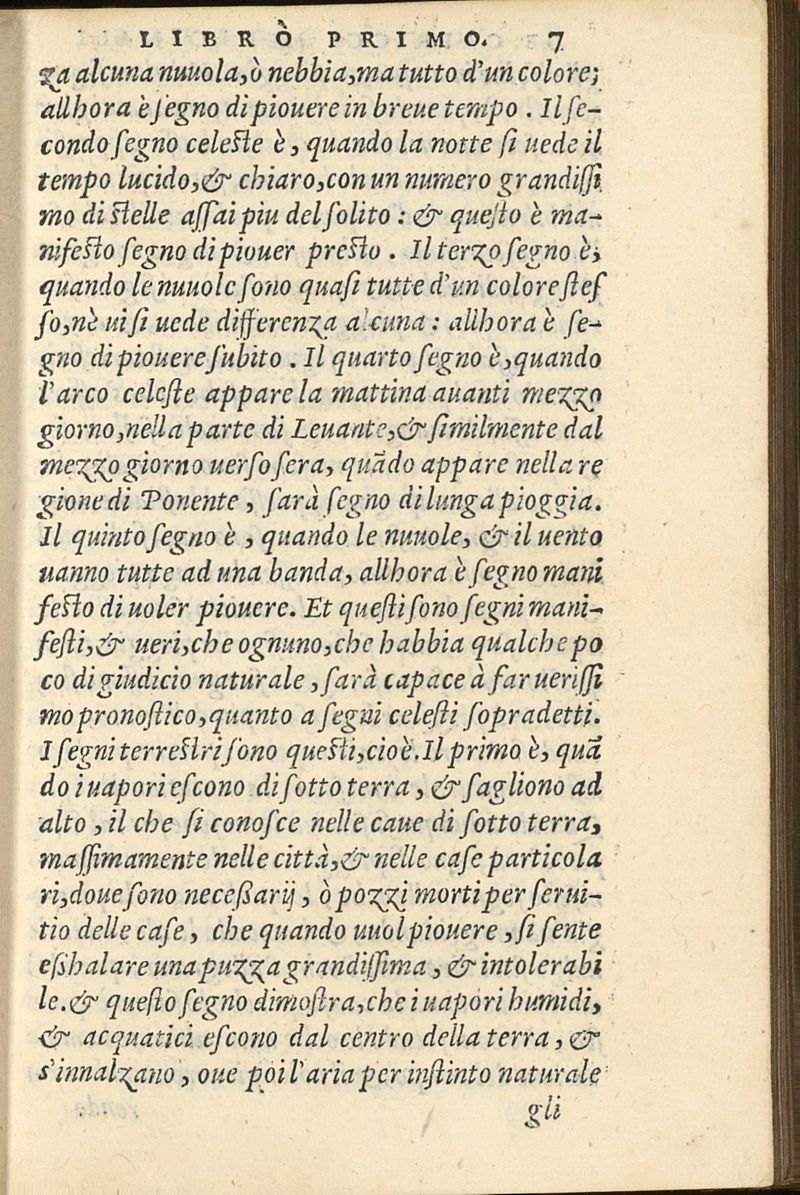 LIBRO PRIMO. 7
za alcuna nuuola, ò nebbia, ma tutto d'un colore;
allhora è ſegno di piouere in breue tempo. Il ſe-
condo ſegno celeſte è, quando la notte ſi uede il
tempo lucido, & chiaro, con un numero grandiſſi
mo di ſtelle aſſai piu del ſolito: & queſto è ma-
nifeſto ſegno di piouer preſto. Il terzo ſegno è,
quando le nuuole ſono quaſi tutte d'un colore ſteſ
ſo, nè ui ſi uede differenza alcuna: allhora è ſe-
gno di piouere ſubito. Il quarto ſegno è, quando
l'arco celeſte appare la mattina auanti mezzo
giorno, nella parte di Leuante, & ſimilmente dal
mezzo giorno uerſo ſera, quādo appare nella re
gione di Ponente, ſarà ſegno di lunga pioggia.
Il quinto ſegno è, quando le nuuole, & il uento
uanno tutte ad una banda, allhora è ſegno mani
feſto di uoler piouere. Et queſti ſono ſegni mani-
feſti, & ueri, che ognuno, che habbia qualche po
co di giudicio naturale, ſarà capace à far ueriſſi
mo pronoſtico, quanto a ſegni celeſti ſopradetti.
I ſegni terreſtri ſono queſti, cioè. Il primo è, quā
do i uapori eſcono di ſotto terra, & ſagliono ad
alto, il che ſi conoſce nelle caue di ſotto terra,
maſſimamente nelle città, & nelle caſe particola
ri, doue ſono neceßarij, ò pozzi morti per ſerui-
tio delle caſe, che quando uuol piouere, ſi ſente
eßhalare una puzza grandiſſima, & intolerabi
le. & queſto ſegno dimoſtra, che i uapori humidi,
& acquatici eſcono dal centro della terra, &
s'innalzano, oue poi l'aria per inſtinto naturale
gli